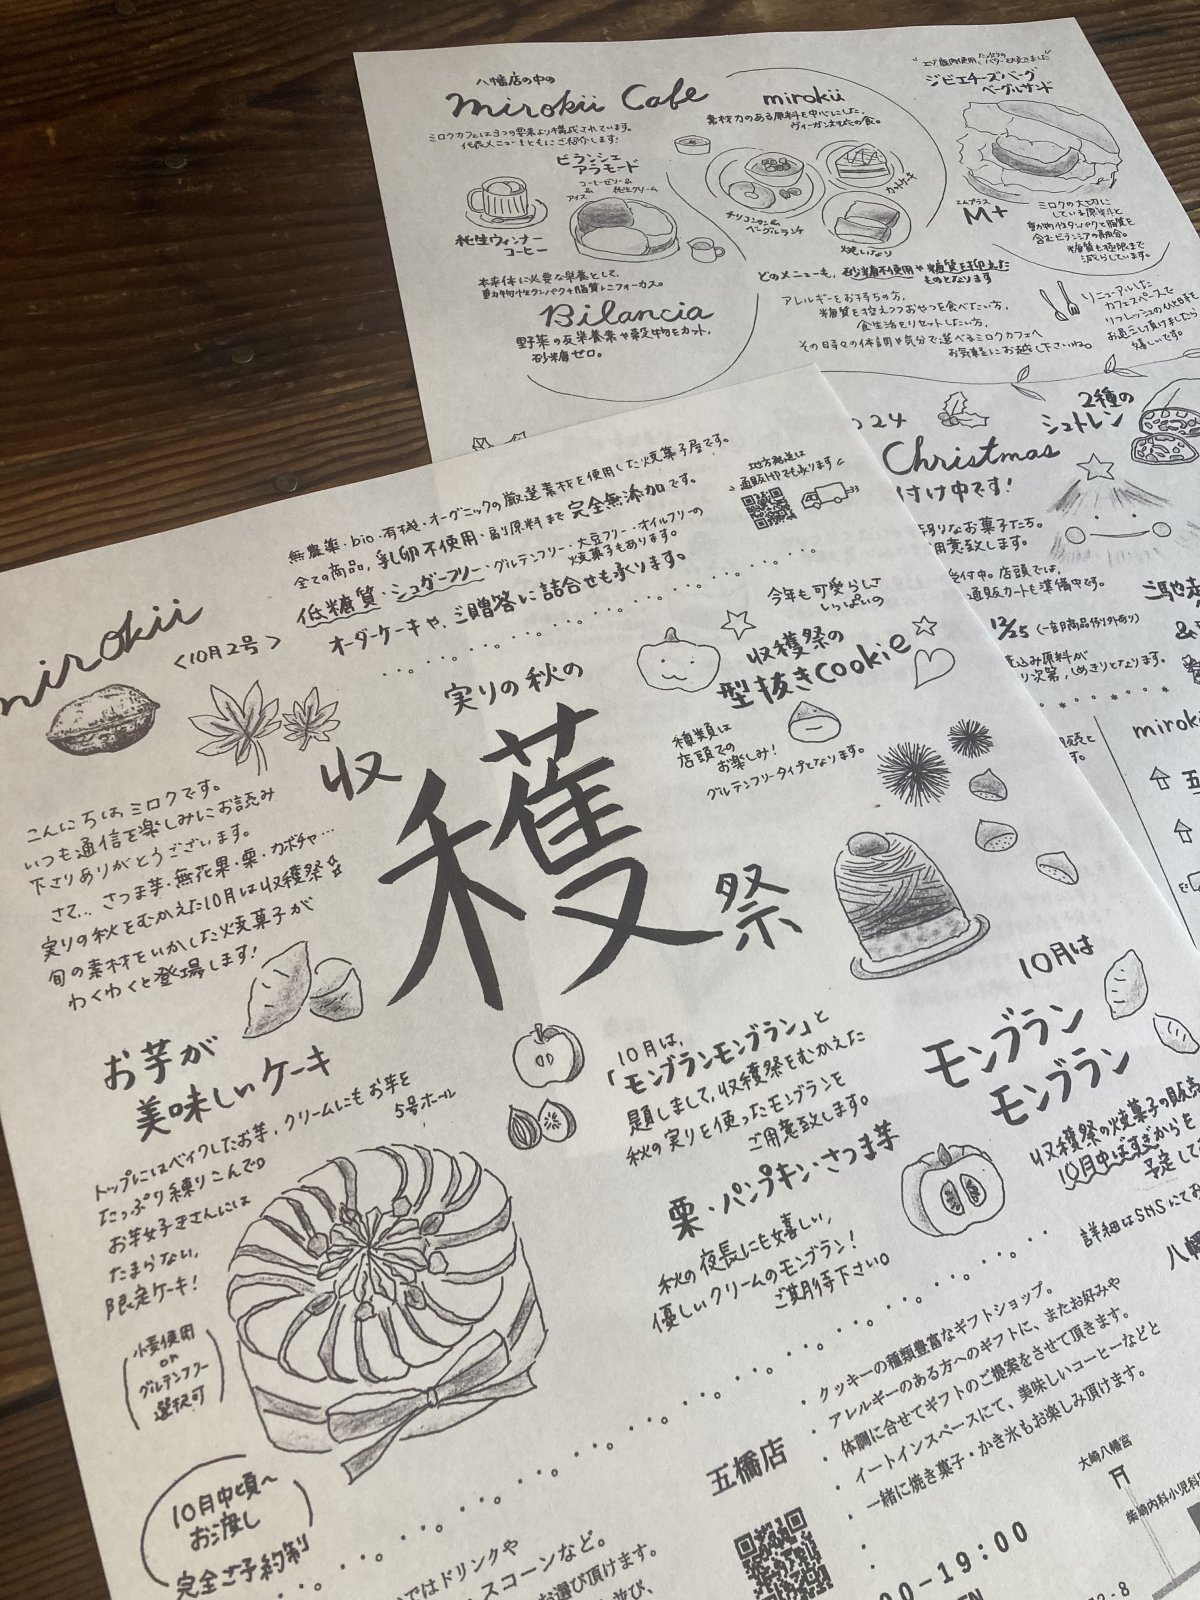 八幡店の中の
mirokii Cafe
ミロクカフェは3つの要素より構成されています。
代表メニューとともにご紹介します!
ビランシェ
アラモード
コーヒーゼリー&
アイス & 純生クリーム
純生ウィンナー
コーヒー
本来体に必要な栄養として、
動物性タンパク+脂質にフォーカス。
Bilancia
野菜の反栄養素や穀物をカット。
砂糖ゼロ。
mirokii
素材力のある原料を中心にした、
ヴィーガン対応の食。
チリコンカン&
ベーグルランチ
カットケーキ
焼いなり
ジビエチーズバーグ
ベーグルサンド
エムプラス
M+
ミロクの大切に
している原料と
動物性タンパクと脂質を
含むビランシアの良い所。
糖質も極限まで
減らしています。
どのメニューも、砂糖不使用や糖質を抑えた
ものとなります
アレルギーをお持ちの方、
糖質を控えつつおやつを食べたい方、
食生活をリセットしたい方、
その日その日の体調や気分で選べるミロクカフェへ
お気軽にお越し下さいね。
リニューアルした
カフェスペースで
リフレッシュのひと時を
お過ごし頂けましたら
嬉しいです。
24
Christmas
付け中です!
2種の
シュトレン
りなお菓子たち。
用意致します。
付中。店頭では、
通販カートも準備中です。
12/25 (一部商品例外あり)
込み原料が
り次第、しめきりとなります。
mirokii
無農薬・bio・有機・オーガニックの厳選素材を使用した焼菓子屋です。
全ての商品、乳卵不使用・副原料まで完全無添加です。
低糖質・シュガーフリー・グルテンフリー・大豆フリー・オイルフリーの
焼菓子もあります。
オーダーケーキや、ご贈答に詰合せも承ります。
地方発送は
通販HPでも承ります
mirokii
<10月2号>
こんにちは、ミロクです。
いつも通信を楽しみにお読み
下さりありがとうございます。
さて… さつま芋・無花果・栗・カボチャ…
実りの秋をむかえた10月は収穫祭☆
旬の素材をいかした焼菓子が
わくわくと登場します!
実りの秋の
収穫祭
今年も可愛らしさ
いっぱいの
収穫祭の
型抜きcookie
種類は
店頭での
お楽しみ!
グルテンフリータイプとなります。
お芋が
美味しいケーキ
トップにはベイクしたお芋、クリームにもお芋を
たっぷり練りこんで。
5号ホール
お芋好きさんには
たまらない、
限定ケーキ!
小麦使用
or
グルテンフリー
選択可
10月中頃~
お渡し
完全ご予約制
10月は、
「モンブランモンブラン」と
題しまして、収穫祭をむかえた
秋の実りを使ったモンブランを
ご用意致します。
栗・パンプキン・さつま芋
秋の夜長にも嬉しい、
優しいクリームのモンブラン!
ご期待下さい。
10月は
モンブラン
モンブラン
収穫祭の焼菓子の販売
10月中ばすぎからを
予定して
詳細はSNSにてお
八幡
五橋店
クッキーの種類豊富なギフトショップ。
アレルギーのある方へのギフトに、またお好みや
体調に合せてギフトのご提案をさせて頂きます。
イートインスペースにて、美味しいコーヒーなどと
一緒に焼き菓子・かき氷もお楽しみ頂けます。
大崎八幡宮
柴崎内科小児科
00-19:00
ではドリンクや
スコーンなど。
お選び頂けます。
並び、